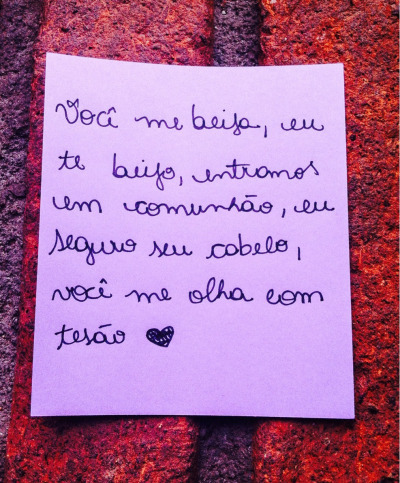 Você me beija, eu
te beijo, entramos
em comunhão, eu
seguro seu cabelo,
você me olha com
tesão